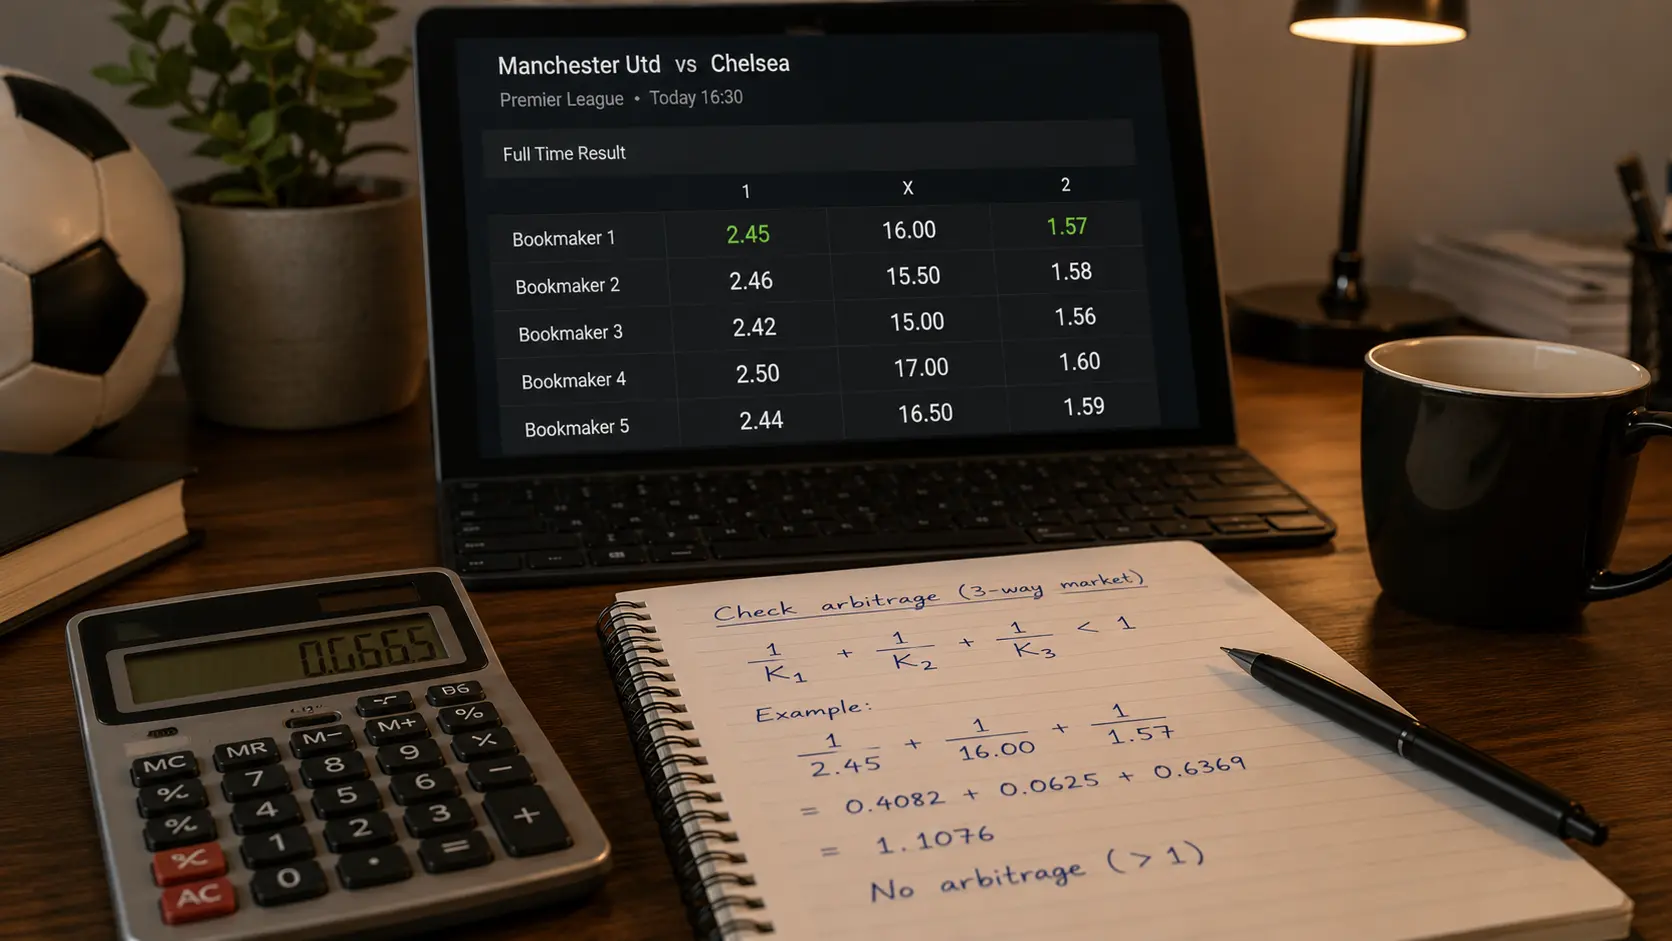 Manchester Utd vs Chelsea
Premier League • Today 16:30
Full Time Result
1 X 2
Bookmaker 1 2.45 16.00 1.57
Bookmaker 2 2.46 15.50 1.58
Bookmaker 3 2.42 15.00 1.56
Bookmaker 4 2.50 17.00 1.60
Bookmaker 5 2.44 16.50 1.59
Check arbitrage (3-way market)
1/K1 + 1/K2 + 1/K3 < 1
Example:
1/2.45 + 1/16.00 + 1/1.57
= 0.4082 + 0.0625 + 0.6369
= 1.1076
No arbitrage (> 1)
MC MR M− M+ %
% 7 8 9 ×
% 4 5 6 −
% 1 2 3 +
AC 0 . =